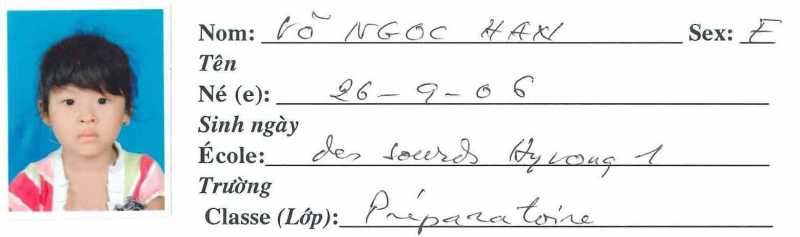 Nom: Võ NGOC HAXI Sex: F
Tên
Né (e): 26-9-06
Sinh ngày
École: des sourds Hy vong 1
Trường
Classe (Lớp): Préparatoire